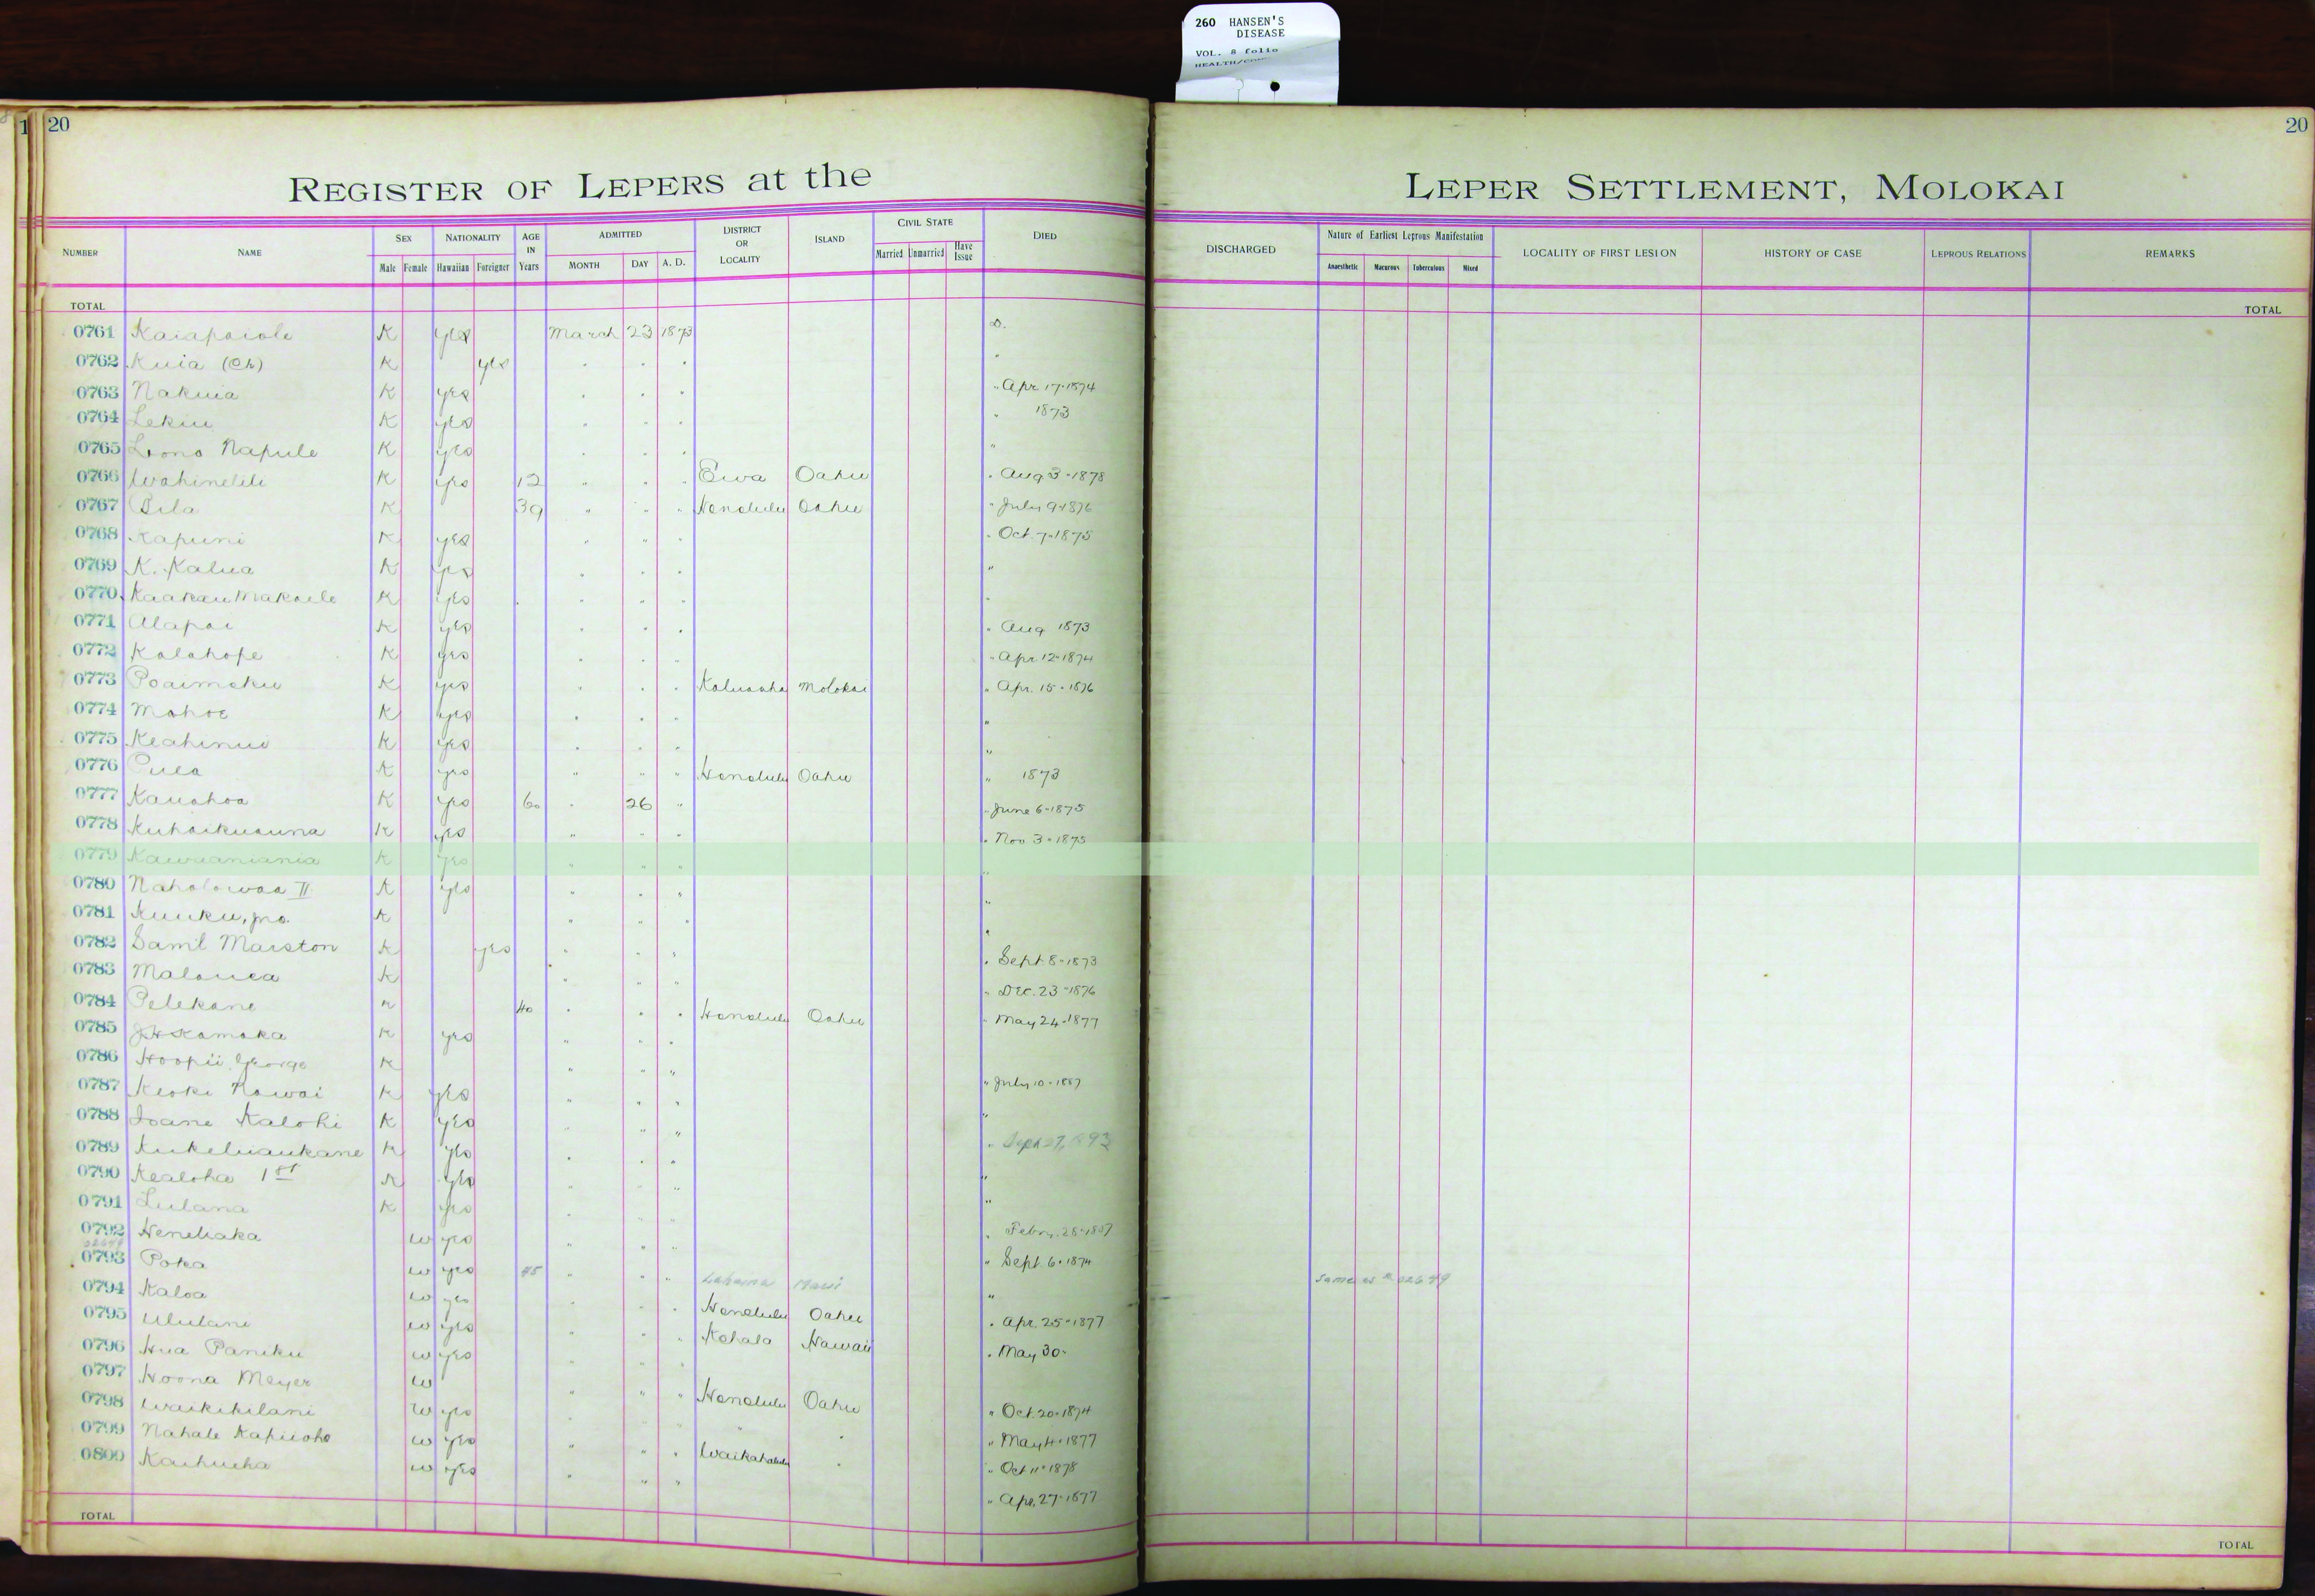 260 HANSEN'S
DISEASE
VOL. 8 folio
20
20
REGISTER OF LEPERS at the
LEPER SETTLEMENT, MOLOKAI
NUMBER NAME SEX Male Female NATIONALITY Hawaiian Foreigner AGE IN Years ADMITTED MONTH DAY A. D. DISTRICT OR LOCALITY ISLAND CIVIL STATE Married Unmarried Have Issue DIED
DISCHARGED Nature of Earliest Leprous Manifestation Anaesthetic Macurous Tuberculous Mixed LOCALITY OF FIRST LESION HISTORY OF CASE LEPROUS RELATIONS REMARKS
TOTAL TOTAL
0761 Kaiapaiole K yes March 23 1873 D.
0762 Kuia (Ch) K yes " " " "
0763 Nakuia K yes " " " " Apr 17-1874
0764 Lekiu K yes " " " " 1873
0765 Lono Napule K yes " " " "
0766 Wahinelili K yes 12 " " " Ewa Oahu " Aug 3-1878
0767 Pila K 39 " " " Honolulu Oahu " July 9-1876
0768 Kapuni K yes " " " " Oct. 7-1875
0769 K. Kalua K yes " " " "
0770 Kaakau Makaele K yes " " " "
0771 Alapai K yes " " " " Aug 1873
0772 Kalahope K yes " " " " Apr. 12-1874
0773 Poaimoku K yes " " " Kaluaaha Molokai " Apr. 15-1876
0774 Mahoe K yes " " " "
0775 Keahinui K yes " " " "
0776 Pula K yes " " " Honolulu Oahu " 1873
0777 Kauahoa K yes 60 " 26 " " June 6-1875
0778 Kuhaikuauna K yes " " " " Nov 3-1875
0779 Kawaaniania K yes " " " "
0780 Naholowaa II K yes " " " "
0781 Kuuku, Jno. K " " " "
0782 Saml Marston K yes " " " " Sept 8-1873
0783 Malanea K " " " " Dec. 23-1876
0784 Pelekane K 40 " " " Honolulu Oahu " May 24-1877
0785 J H Kamaka K yes " " "
0786 Hoopii George K " " " " July 10-1887
0787 Keoki Nawai K yes " " " "
0788 Ioane Kalohi K yes " " " " Sept 27,
0789 Kukeluaukane K yes " " " "
0790 Kealoha 1st K yes " " " "
0791 Lulana K yes " " " " Febru. 28-1887
0792 Henehaka W yes " " " " Sept. 6-1874
02649
0793 Poka W yes 45 " " " Lahaina Maui " Same as # 02649
0794 Kaloa W yes " " " Honolulu Oahu " Apr. 25-1877
0795 Ululani W yes " " " Kohala Hawaii " May 30-
0796 Hua Paniku W yes " " "
0797 Hoona Meyer W " " " Honolulu Oahu " Oct. 20-1874
0798 Waikikilani W yes " " " " " " May 4-1877
0799 Nahale Kapuoho W yes " " " Waikahalulu " " Oct 11-1878
0800 Kaihueha W yes " " " " Apr. 27-1877
TOTAL TOTAL